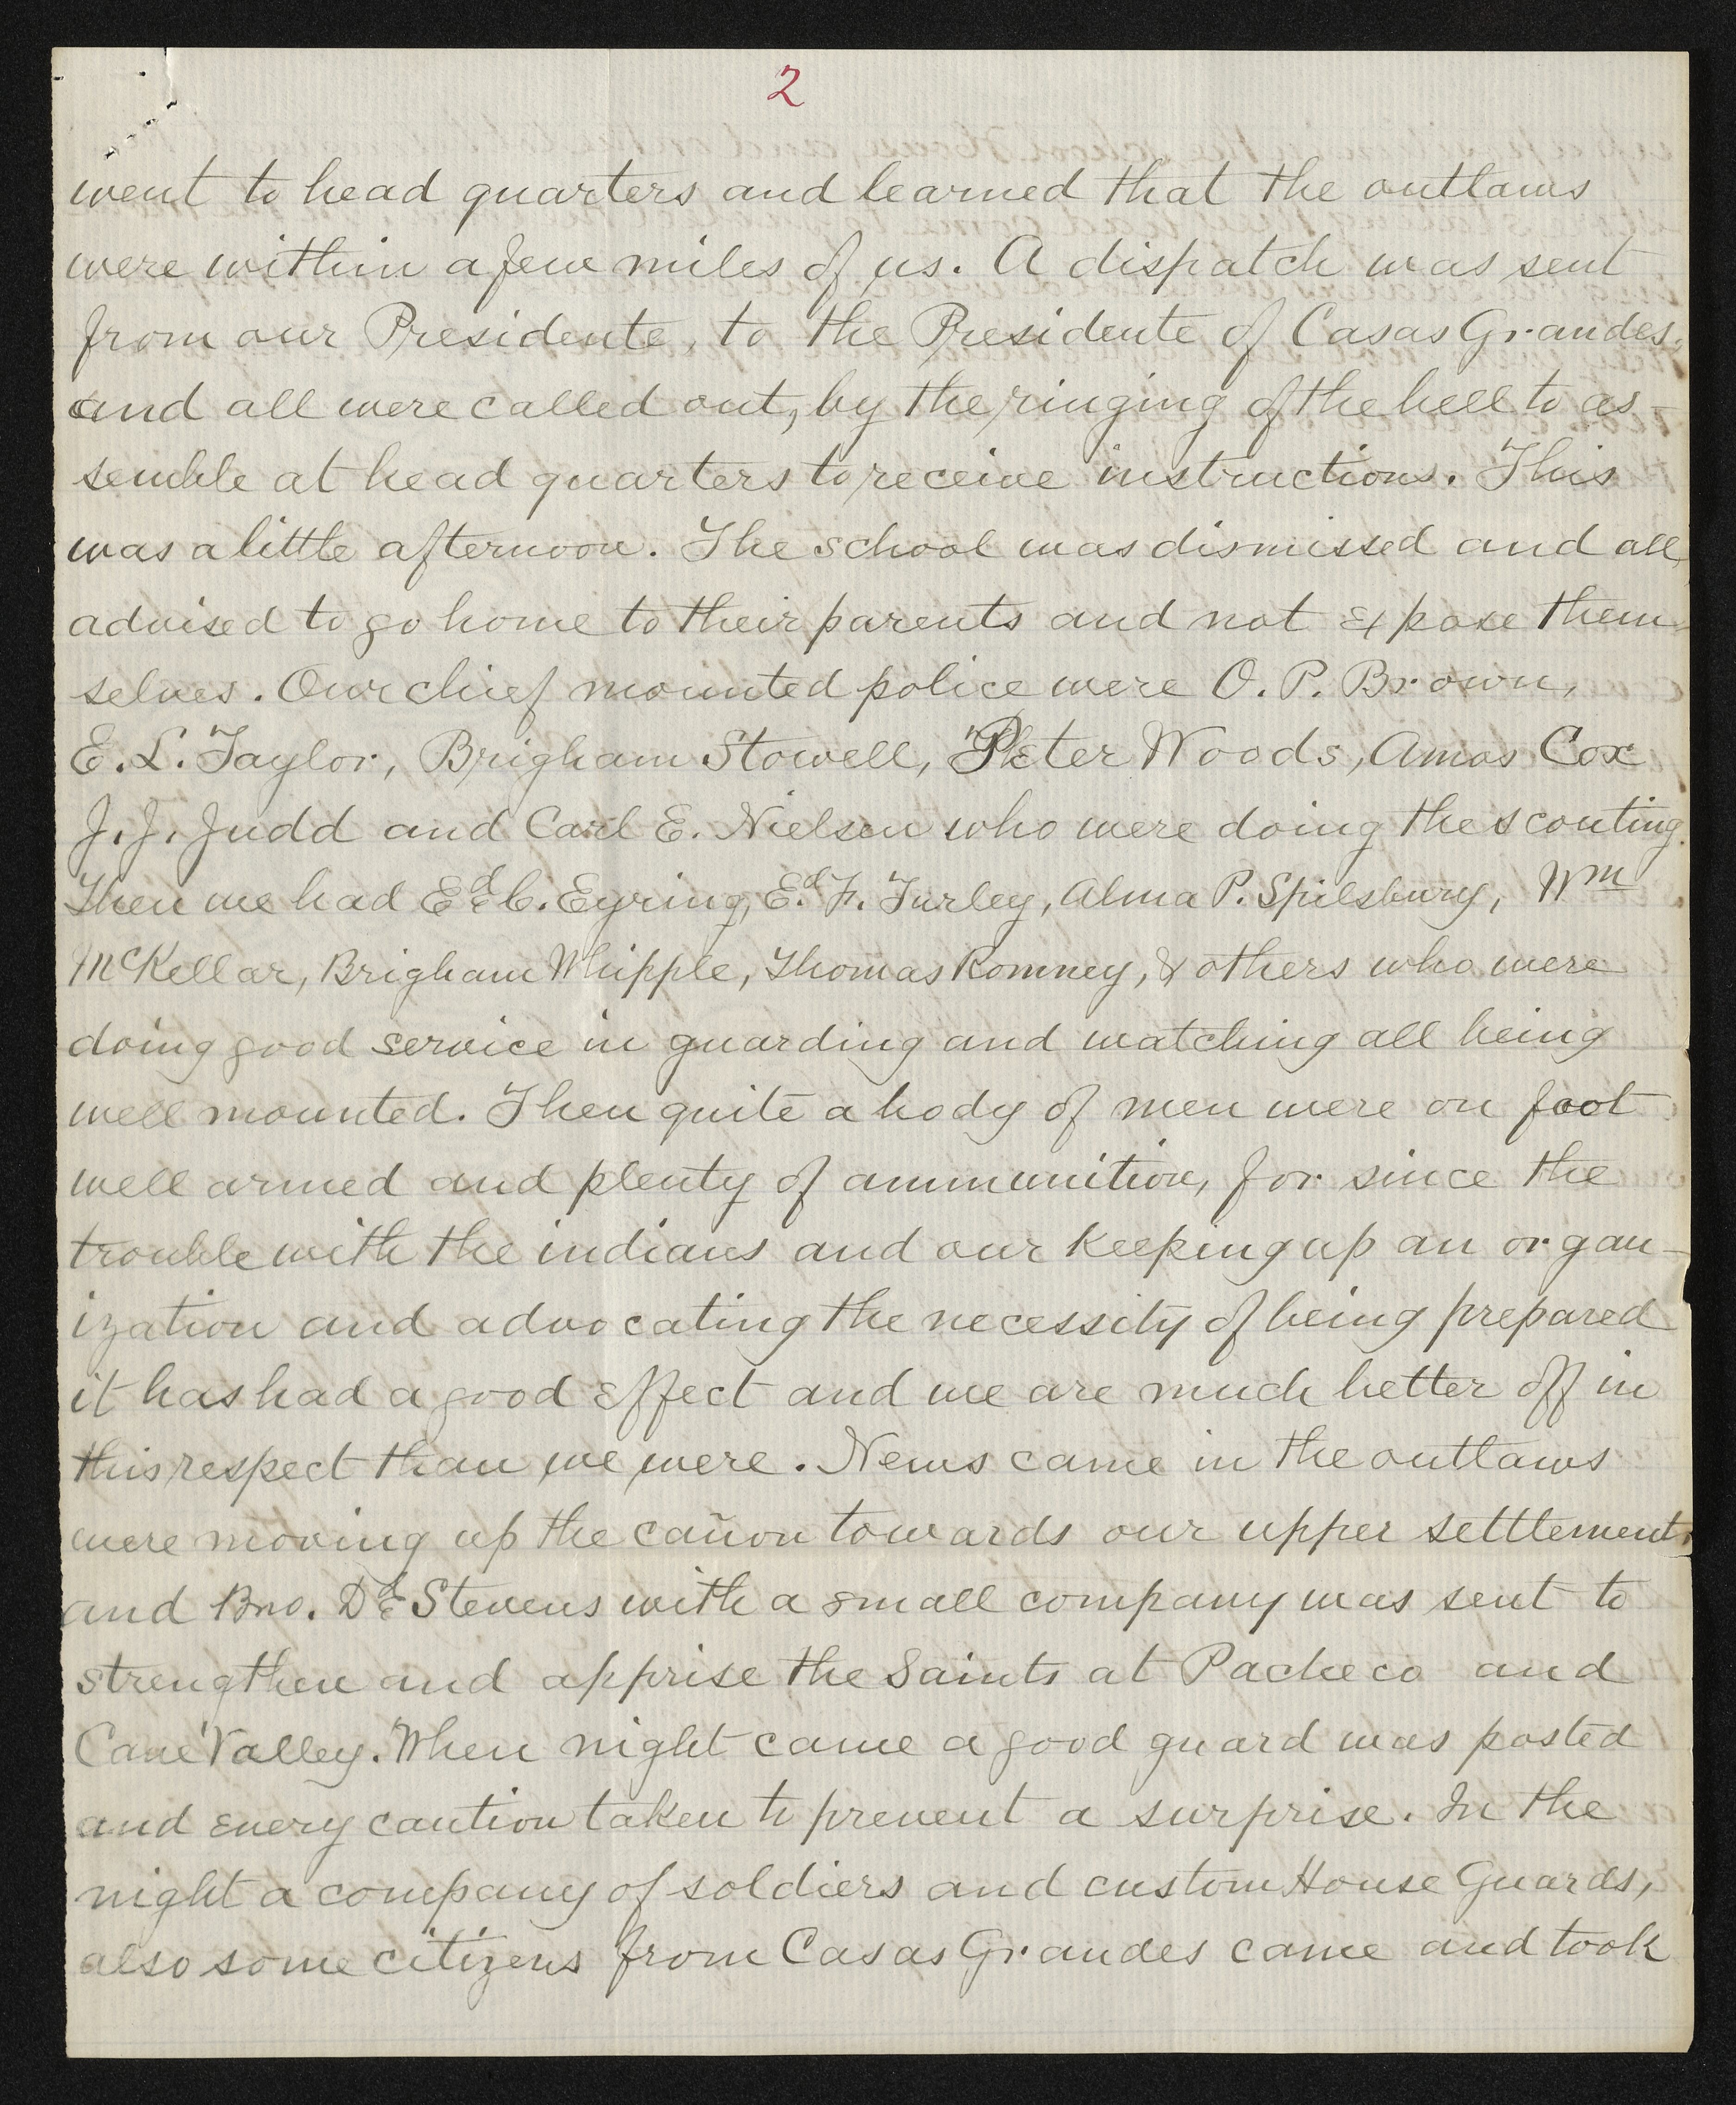 2
went to head quarters and learned that the outlaws
were within a few miles of us. A dispatch was sent
from our Presidente, to the Presidente of Casas Grandes,
and all were called out, by the ringing of the bell to as-
semble at head quarters to receive instructions. This
was a little afternoon. The school was dismissed and all
advised to go home to their parents and not expose them-
selves. Our chief mounted police were O. P. Brown,
E. L. Taylor, Brigham Stowell, Peter Woods, Amos Cox
J. J. Judd and Carl E. Nielsen who were doing the scouting.
Then we had Ed C. Eyring, Ed. F. Turley, Alma P. Spilsbury, Wm
McKellar, Brigham Whipple, Thomas Romney, & others who were
doing good service in guarding and watching all being
well mounted. Then quite a body of men were on foot
well armed and plenty of ammunition, for since the
trouble with the indians and our keeping up an organ-
ization and advocating the necessity of being prepared
it has had a good effect and we are much better off in
this respect than we were. News came in the outlaws
were moving up the cañon towards our upper settlement,
and Bro. D. E. Stevens with a small company was sent to
strengthen and apprise the Saints at Pacheco and
Cave Valley. When night came a good guard was posted
and every caution taken to prevent a surprise. In the
night a company of soldiers and custom House Guards,
also some citizens from Casas Grandes came and took